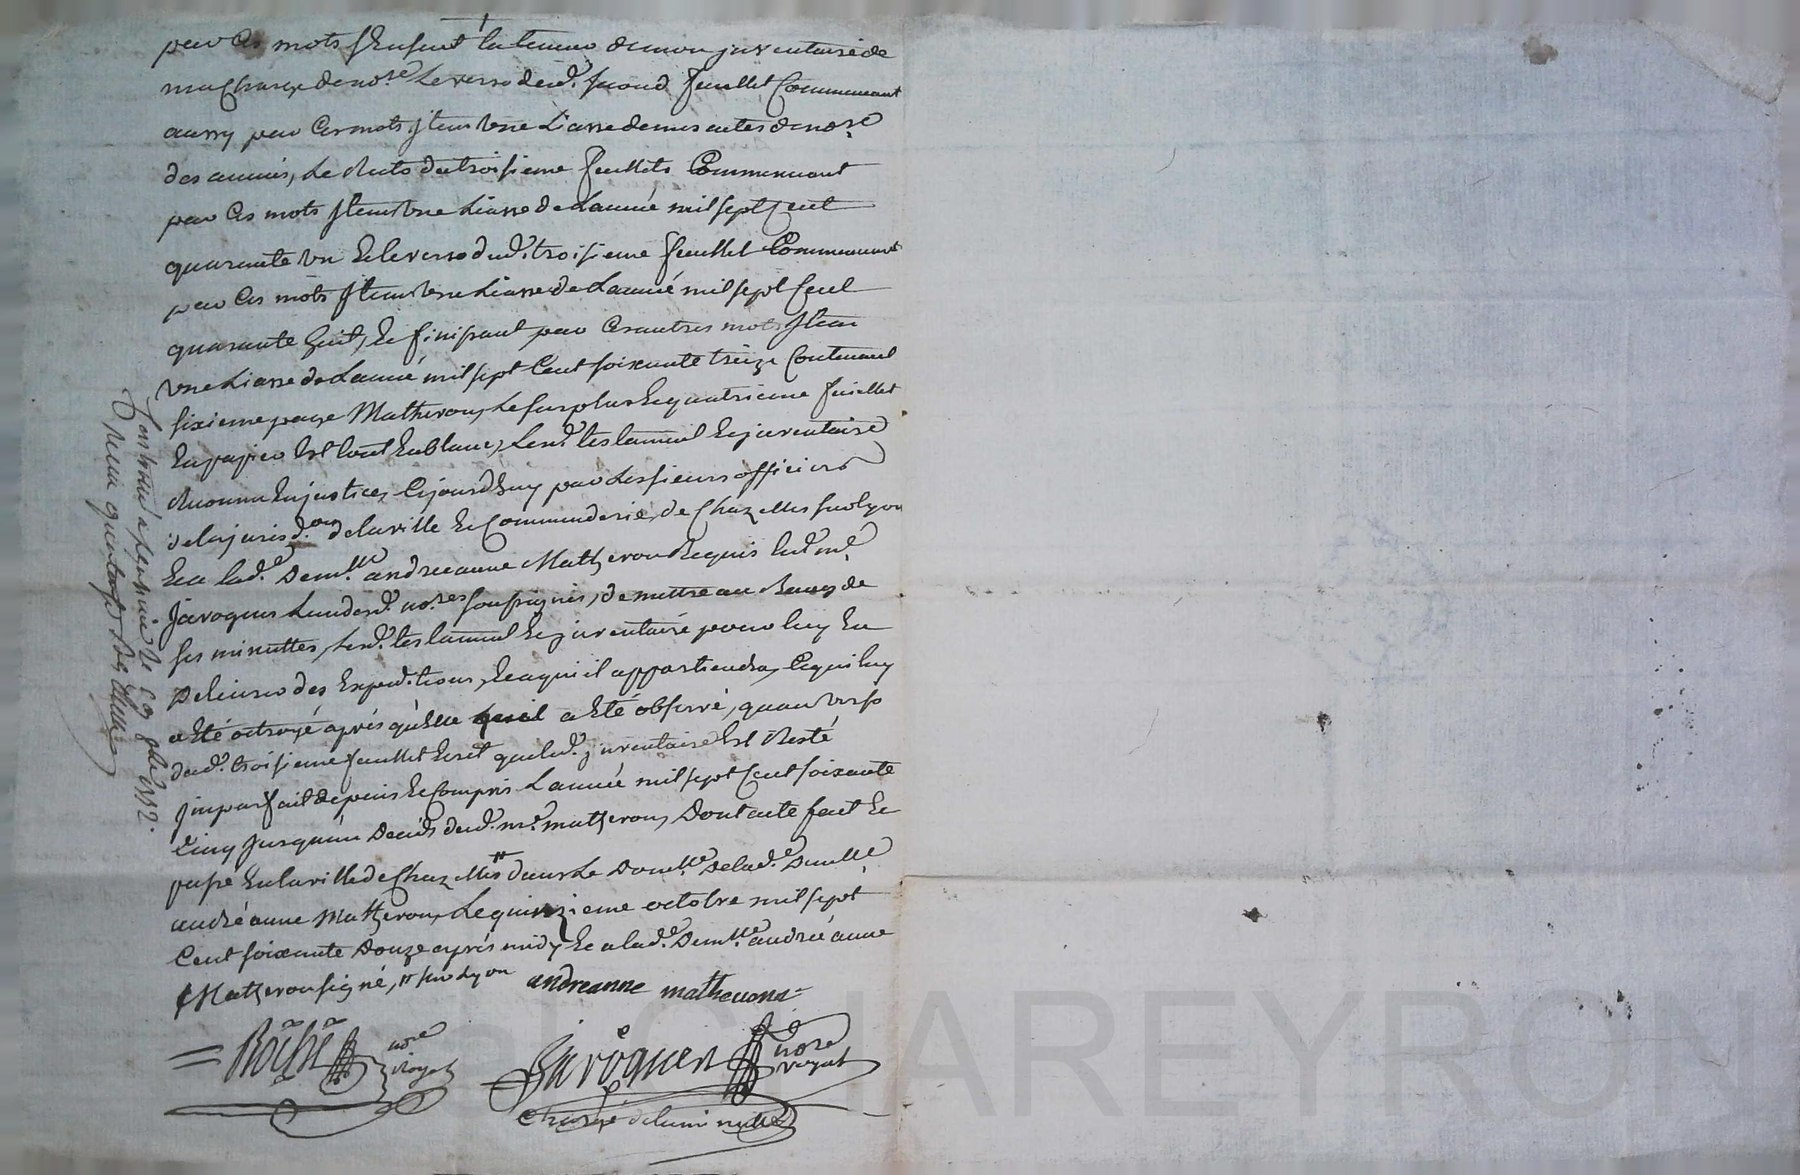 par Ces mots s'Ensuit la teneur de mon jnventaire de
ma Charge de no.re Le verso dud. second feuillet Commencant
aussy par Ces mots jtem Vne Liasse de mes actes de no.re
des années, Le Recto du troisieme feuillets Commencant
par Ces mots jtem Vne Liasse de Lannée mil sept Cent
quarante Vn Et le verso dud. troisieme feuillet Commencant
par Ces mots jtem Vne Liasse de Lannée mil sept Cent
quarante huit, Et finissant par Ces autres mots jtem
Vne Liasse de Lannée mil sept Cent soixante treize Contenant
sixieme page Matheron, Le surplus Et quatrieme feuillet
du papier Est tout En blanc, Lesd. testament Et jnventaire
Reconnu En justice, Cejourd'huy par Les sieurs officiers
de la jurisd.on de la ville Et Commanderie, de Chazelles sur Lyon
Et a lad.e Dem.lle andrée anne Matheron Requis led. m.e
Jaroquen Lun desd. no.res soussignés, de mettre au Rang de
ses minuttes, Lesd. testament Et jnventaire pour luy En
Delivrer des Expeditions, Et a qui il appartiendra, Ce qui luy
a Eté octroyé après qu'elle a Eté observé, qu'au verso
dud. troisieme feuillet Ecrit que led. jnventaire Est Resté
jmparfait depuis Et Compris Lannée mil sept Cent soixante
Cinq jusqu'au Deceds dud. m.e matheron, Dont acte fait Et
passé En la ville de Chazelles dans Le Dom.lle De lad.e Dem.lle
andrée anne Matheron, Le quinzieme octobre mil sept
Cent soixante Douze après midy Et a lad.e Dem.lle andrée anne
Matheron signé, # sur Lyon andreanne matheron
Roche no.re royal Jaroquen no.re royal
Chargé de la minutte
Controllé a le 29 8bre 1772.
Reçu quatorze sols
CHAREYRON